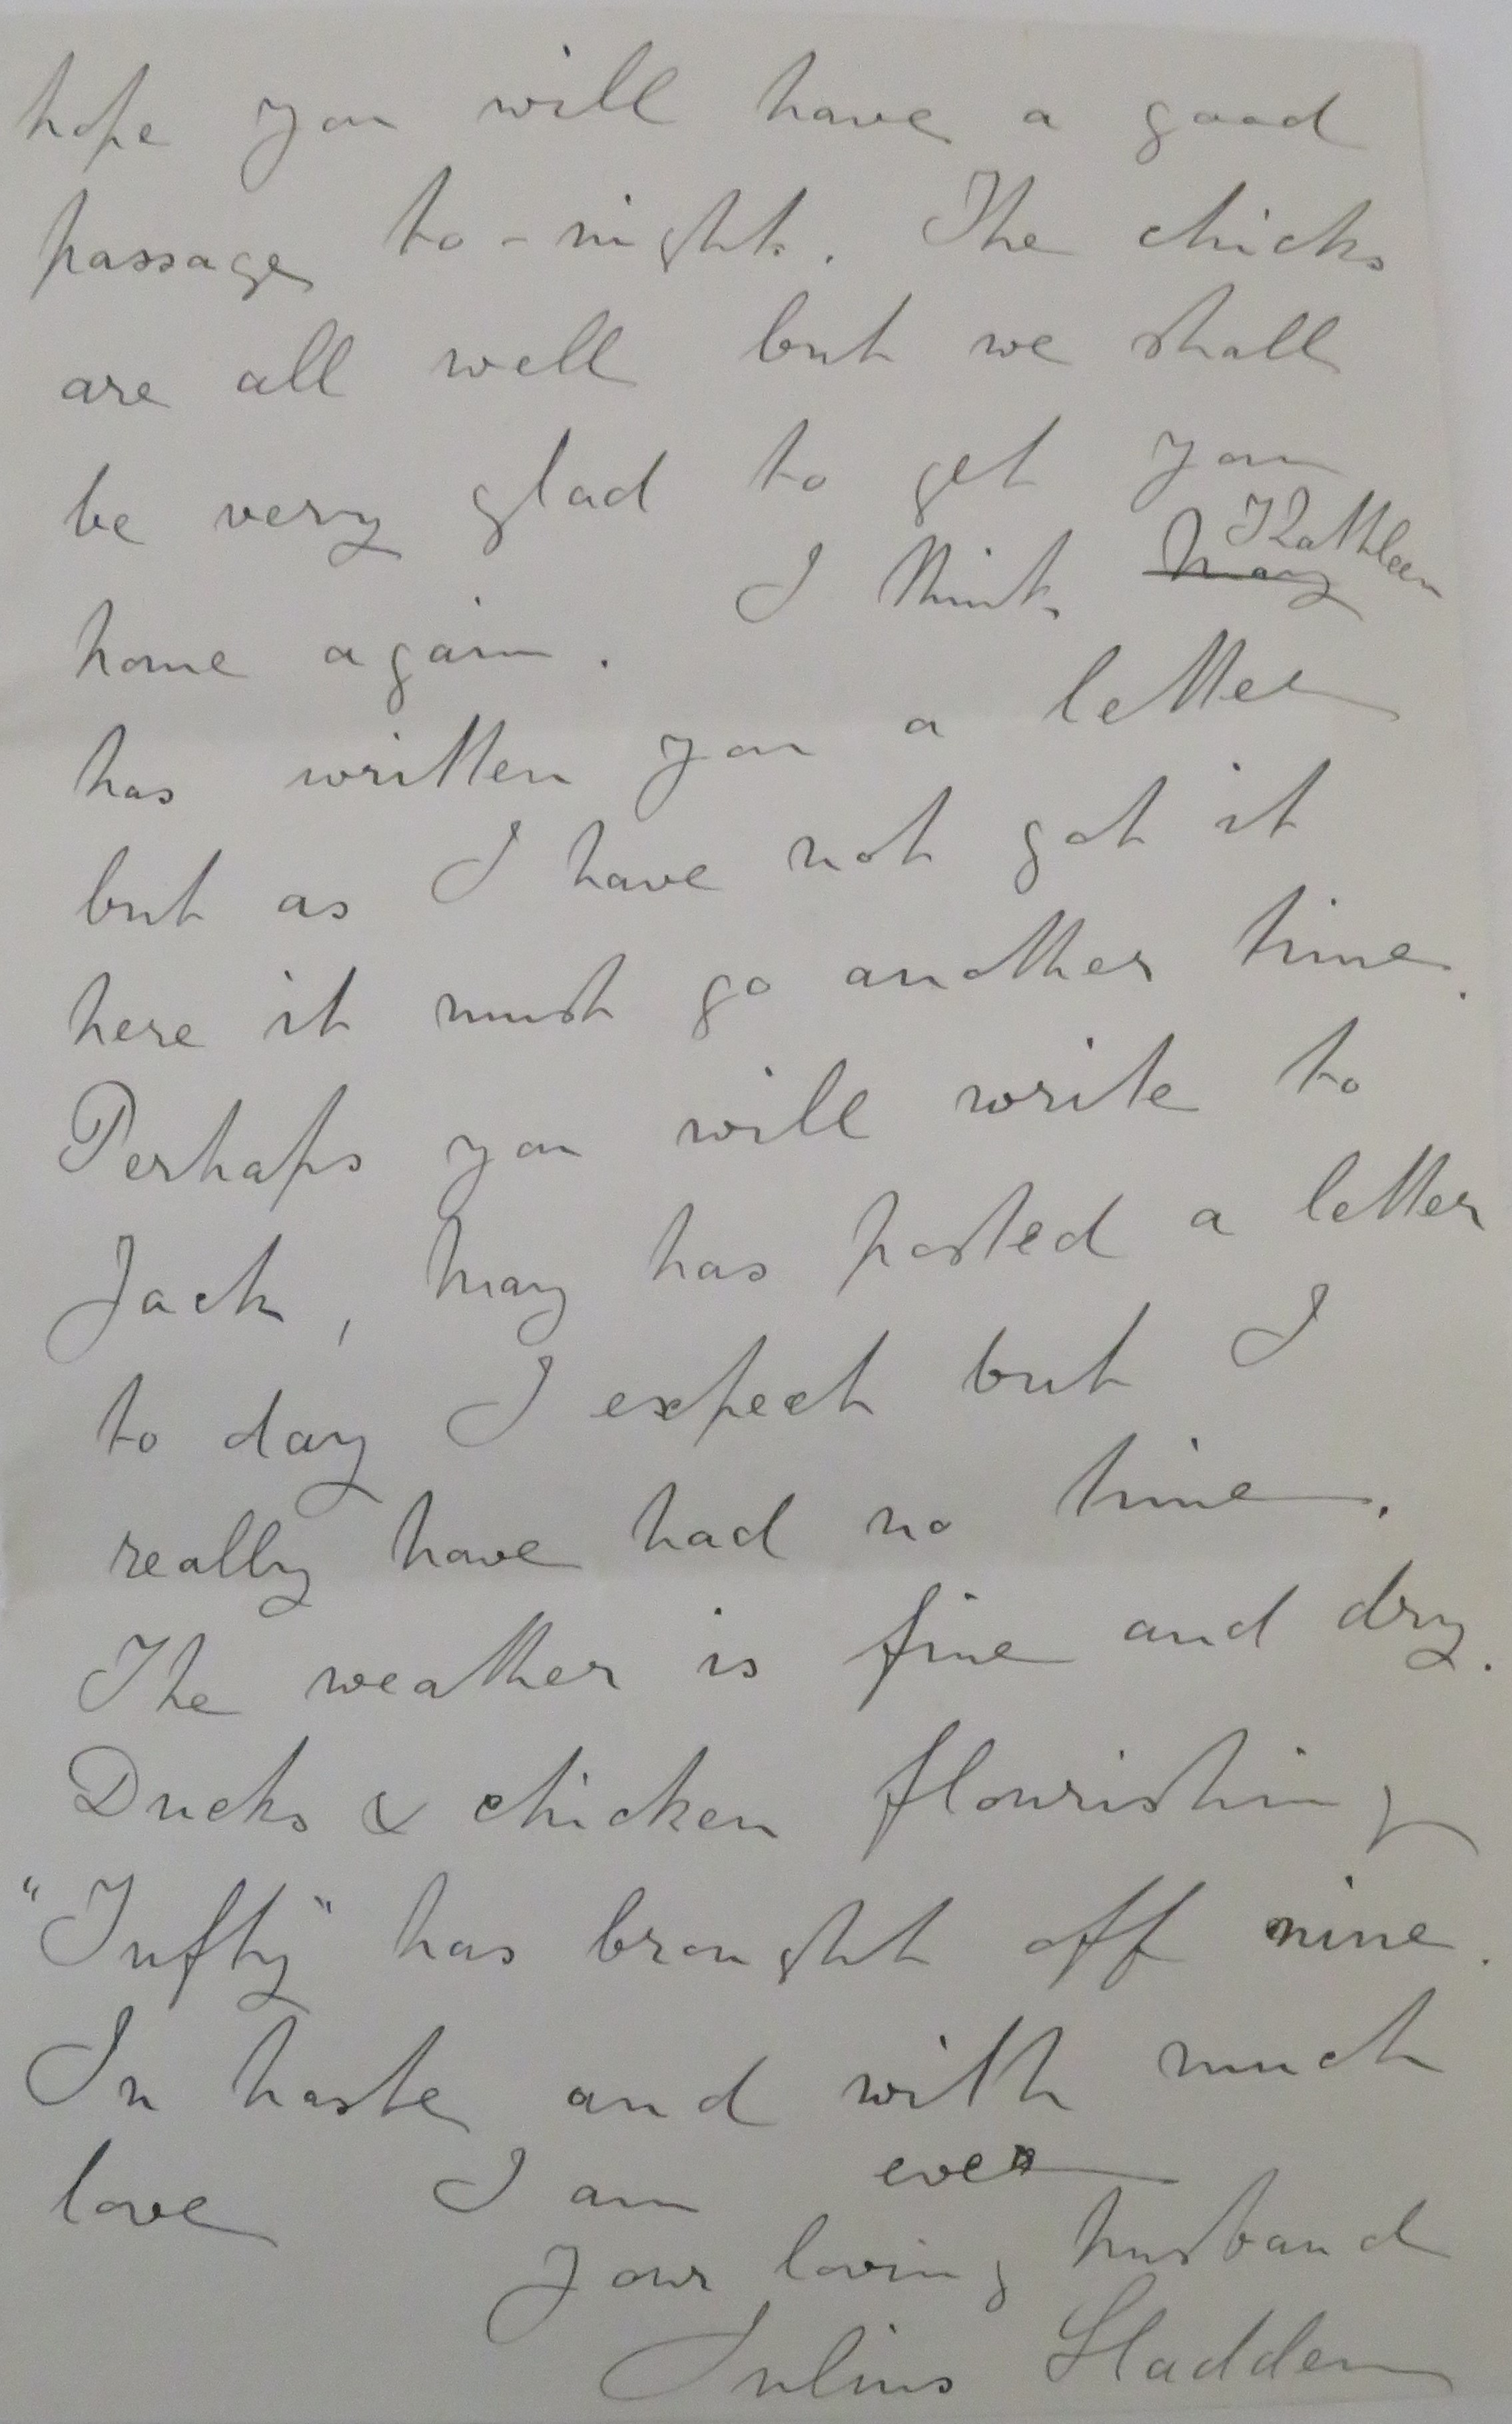 hope you will have a good
passage to-night. The chicks
are all well but we shall
be very glad to get you
Kathleen
home again. I think May
has written you a letter
but as I have not got it
here it must go another time.
Perhaps you will write to
Jack, May has posted a letter
to day I expect but I
really have had no time.
The weather is fine and dry.
Ducks & chicken flourishing
"Tufty" has brought off nine.
In haste and with much
love I am ever
your loving husband
Julius Sladden